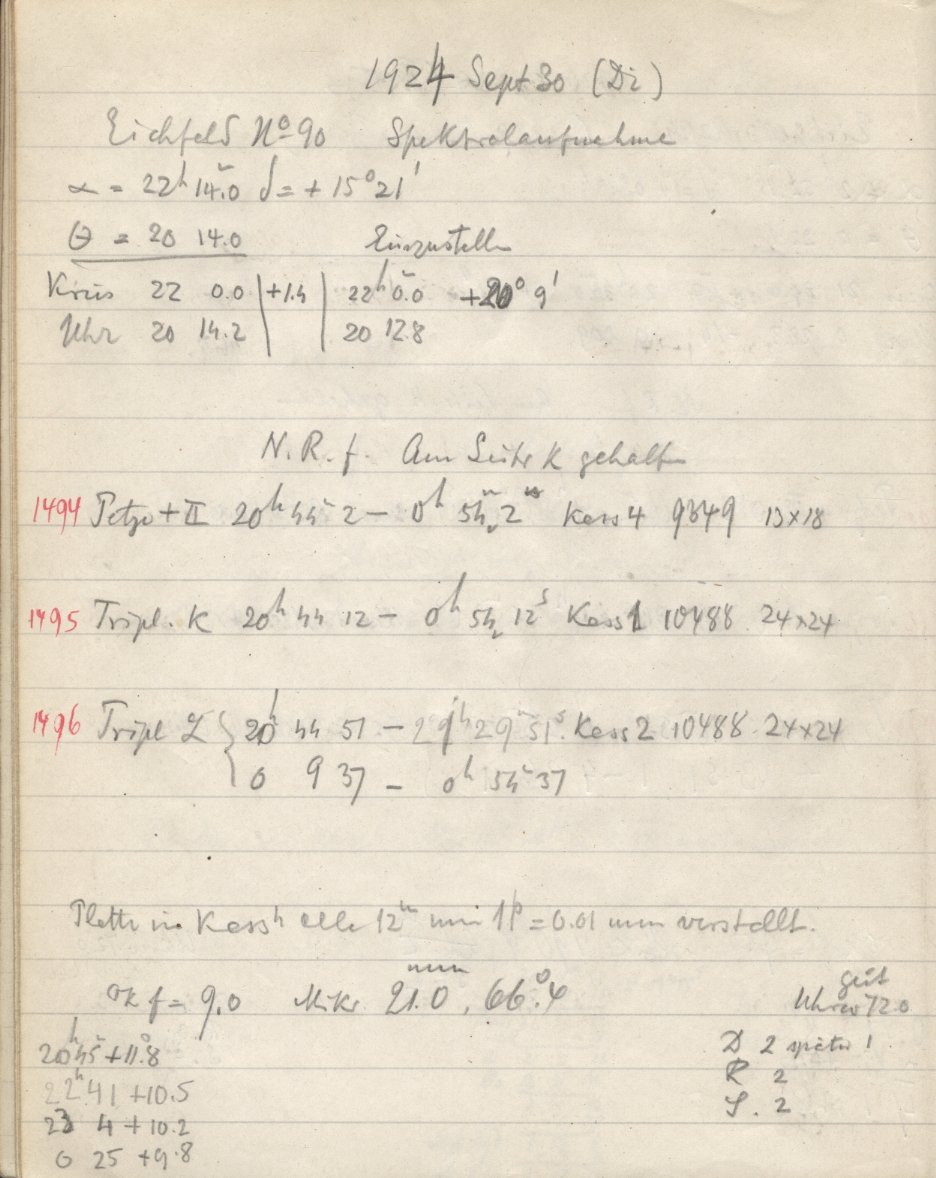 1924 Sept 30 (Di)
Eichfeld No 90 Spektralaufnahme
α = 22h 14.0 δ = + 15° 21'
θ = 20 14.0 Einzustellen
Kreis 22 0.0 | +1.4 | 22h 0.0 +20° 9'
Uhr 20 14.2 | | 20 12.8
N. R. f. Am Leitr K gehalten
1494 Petzv + II 20h 44m 2 – 0h 54m 2s Kass 4 9349 13×18
1495 Tripl. K 20h 44 12 – 0h 54 12s Kass 1 10488 24×24
1496 Tripl L { 20h 44 51 – 29m 51s. Kass 2 10488 24×24
0 9 37 – 0h 54m 37
Platte in Kass 4 alle 12m um 1p = 0.01 mm verstellt.
f = 9.0 Mikr. 21.0mm, 66°.4
gut
Uhr 72.0
20h 45m +11.8
D 2 später 1
22h 41 +10.5
R 2
23 4 +10.2
S. 2
0 25 +9.8